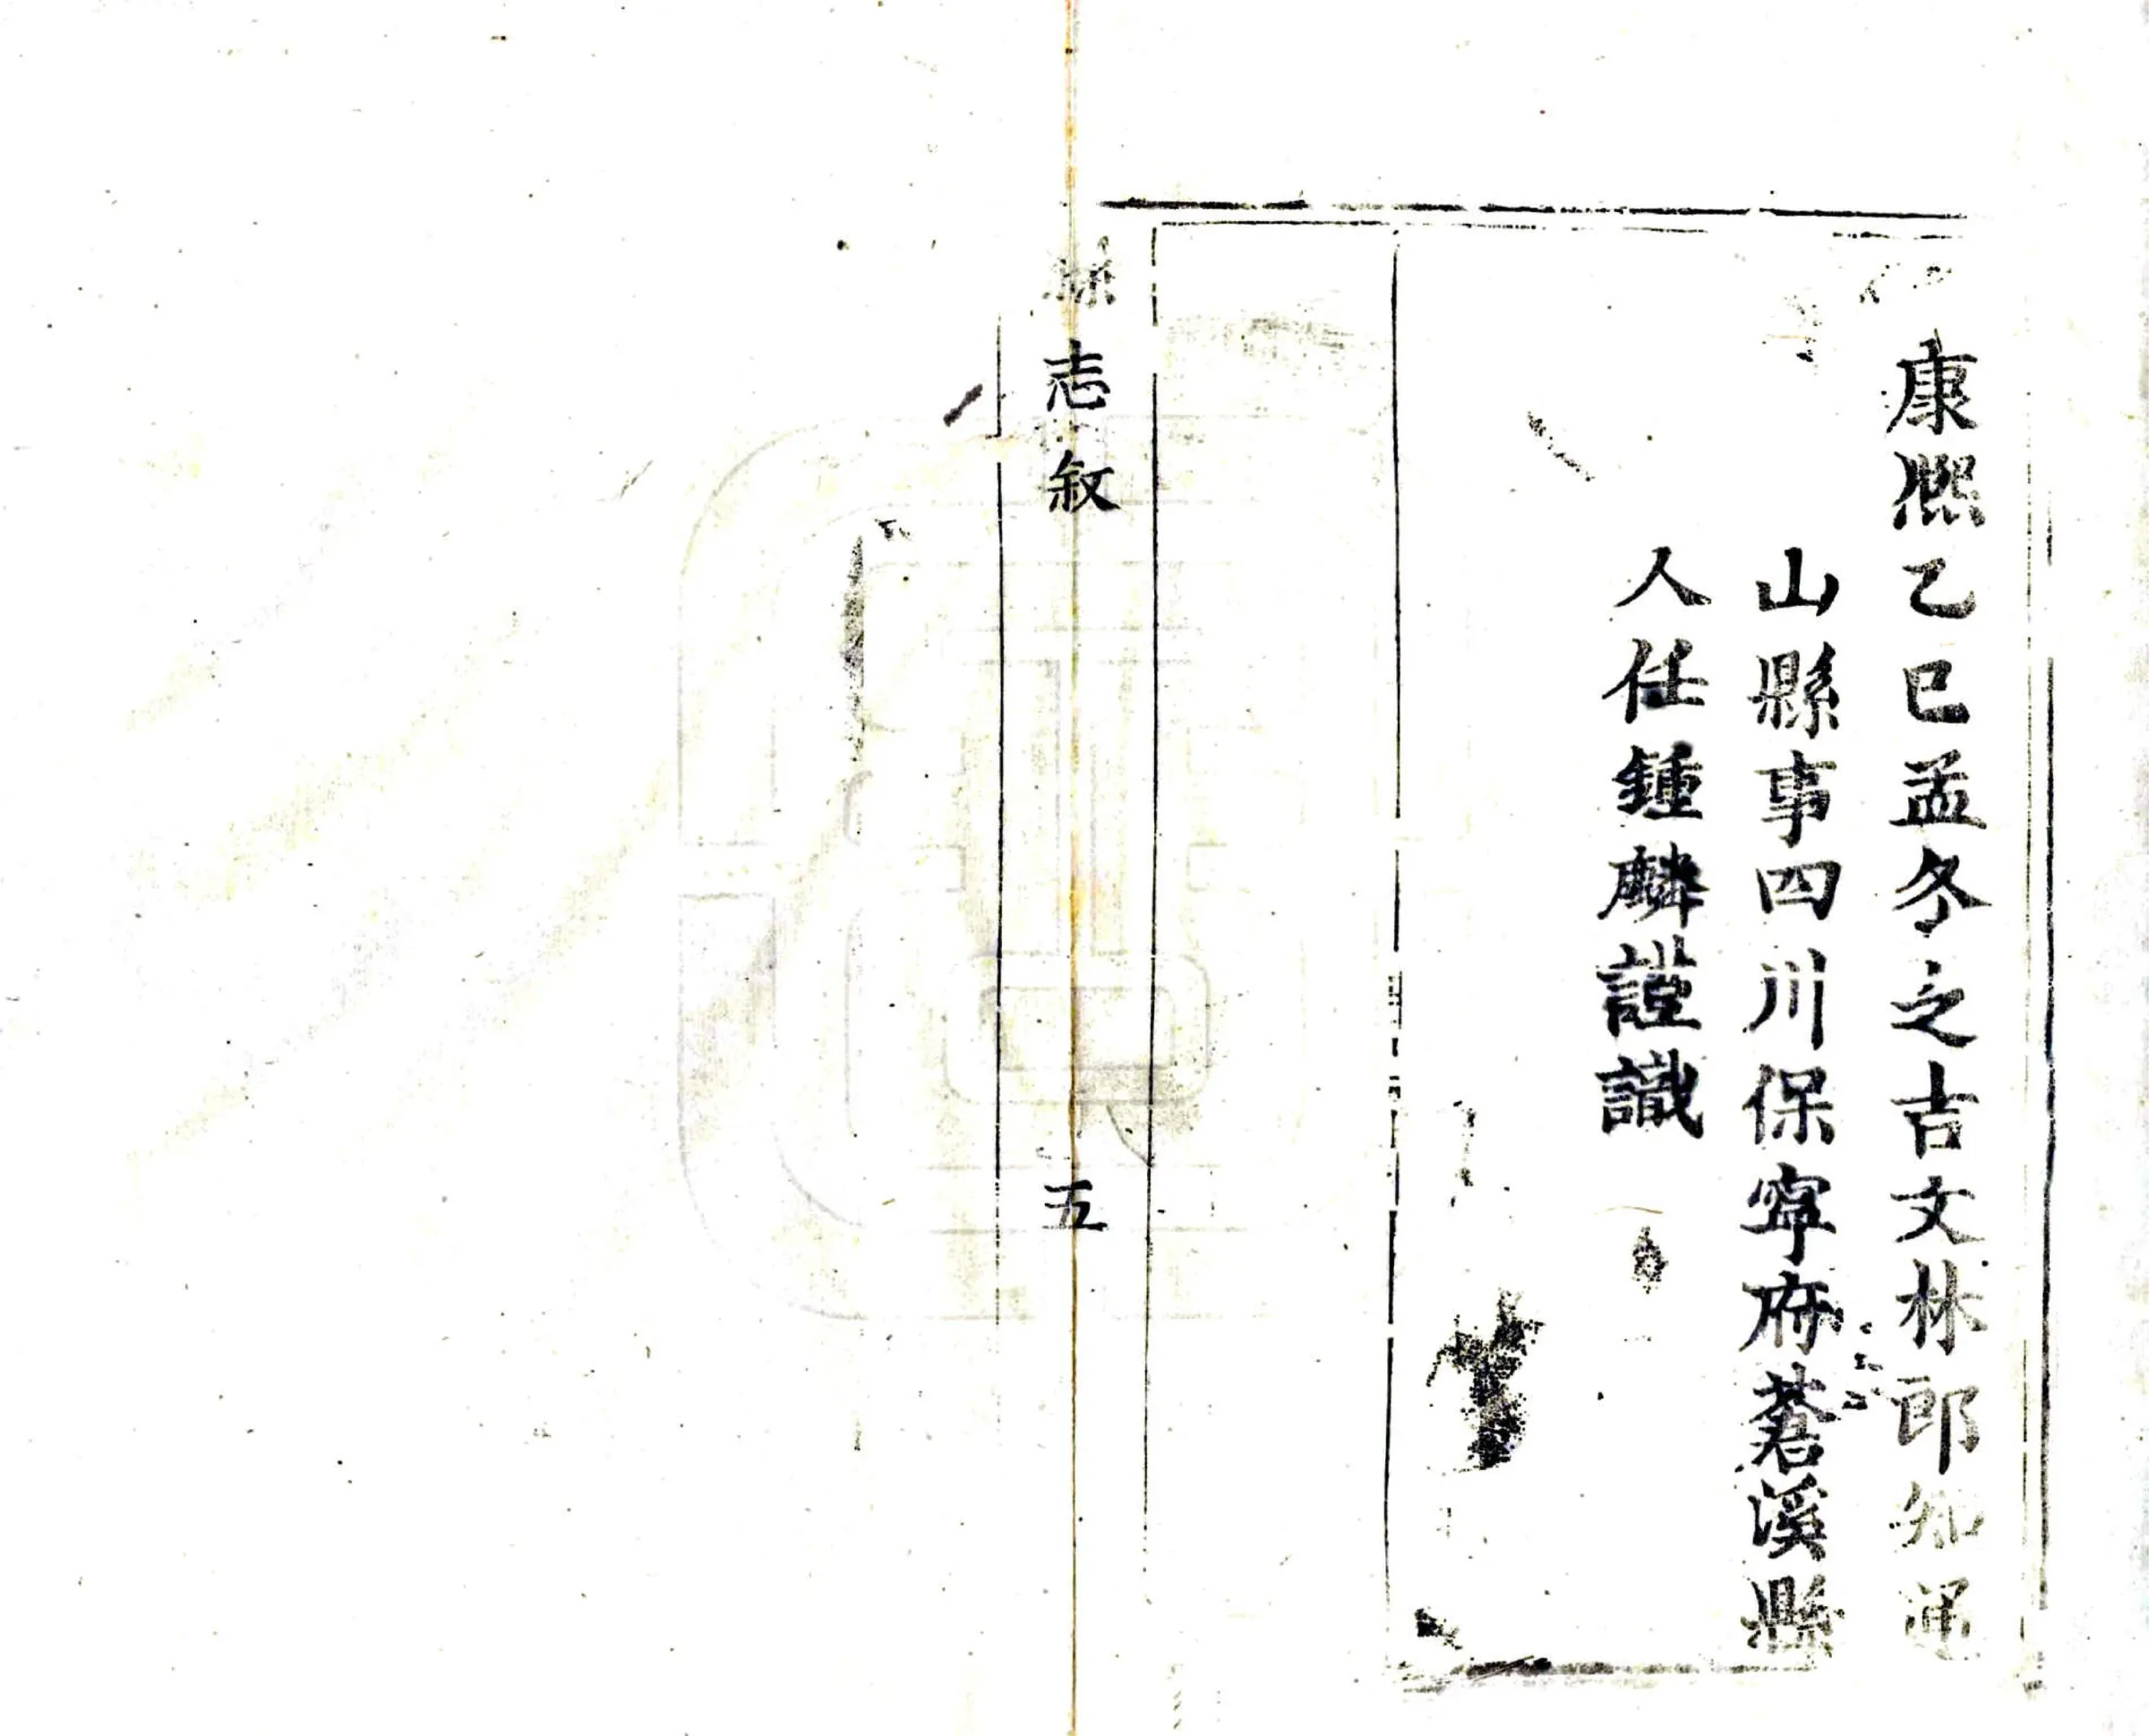 康熙乙巳孟冬之吉文林郎知通
山縣事四川保寧府蒼溪縣
人任鍾麟謹識
縣志叙
五